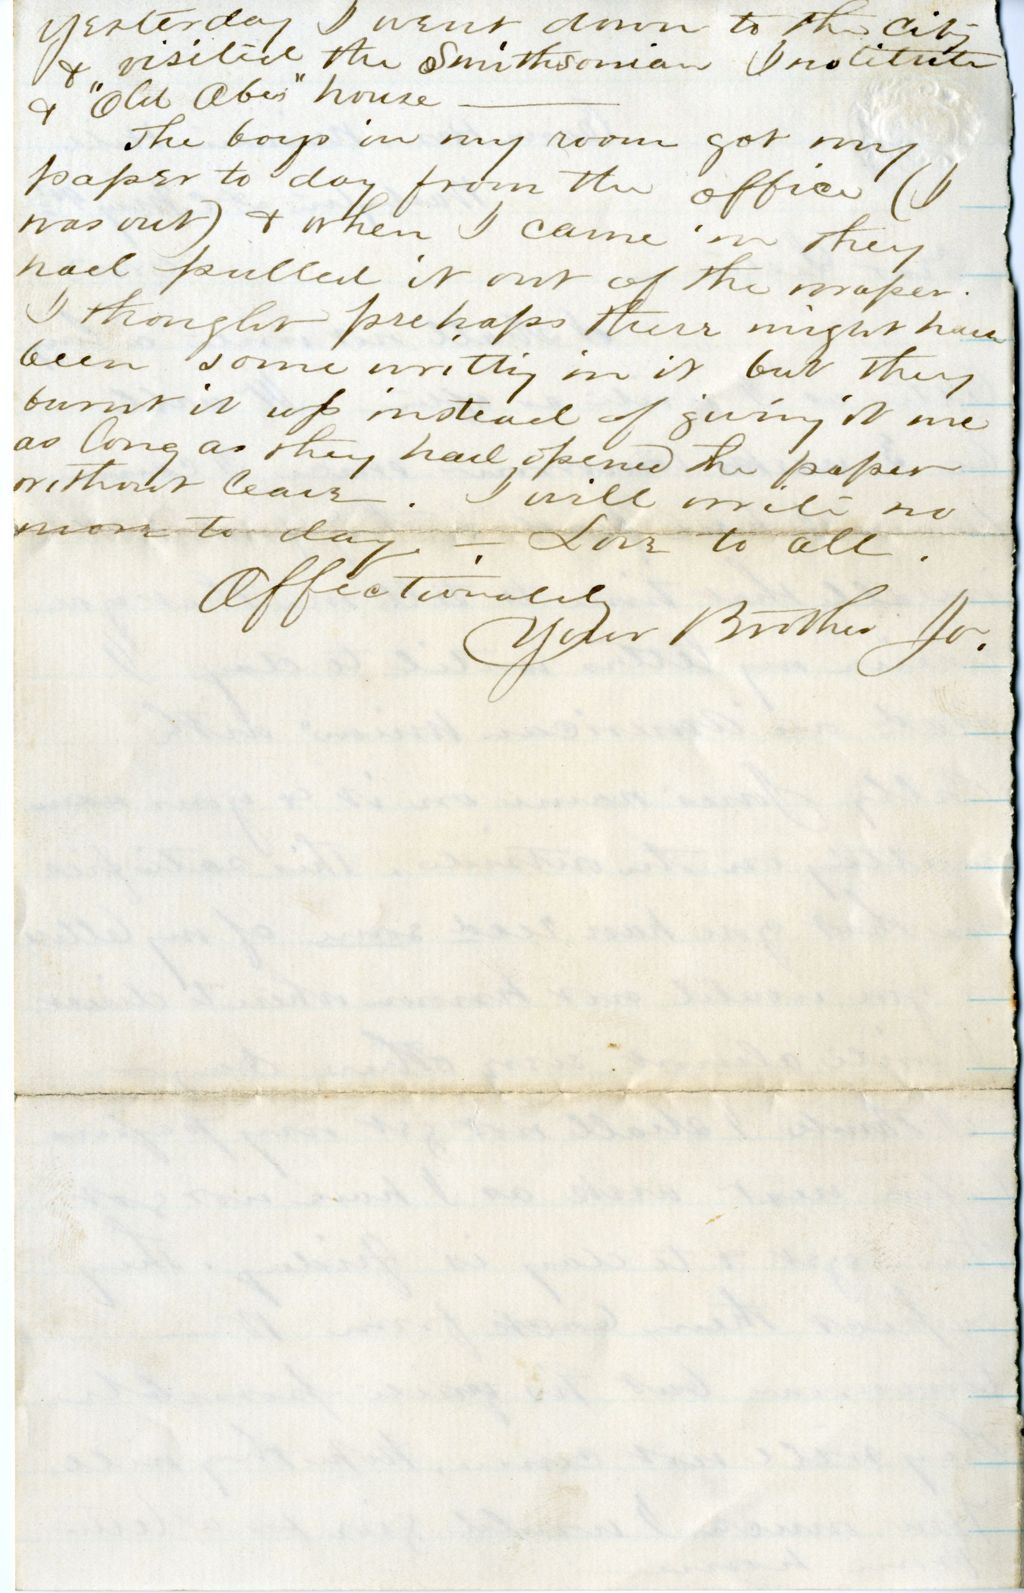 Yesterday I went down to the City
& visited the Smithsonian Institute
& "Old Abes" house ———
The boys in my room got my
paper to day from the office (I
was out) & when I came in they
had pulled it out of the wraper.
I thought prehaps there might have
been some writtig in it but they
burnt it up instead of giving it me
as long as they had opened the paper
without leave. I will write no
more to day. — Love to all.
Affectionately
Your Brother Jo.